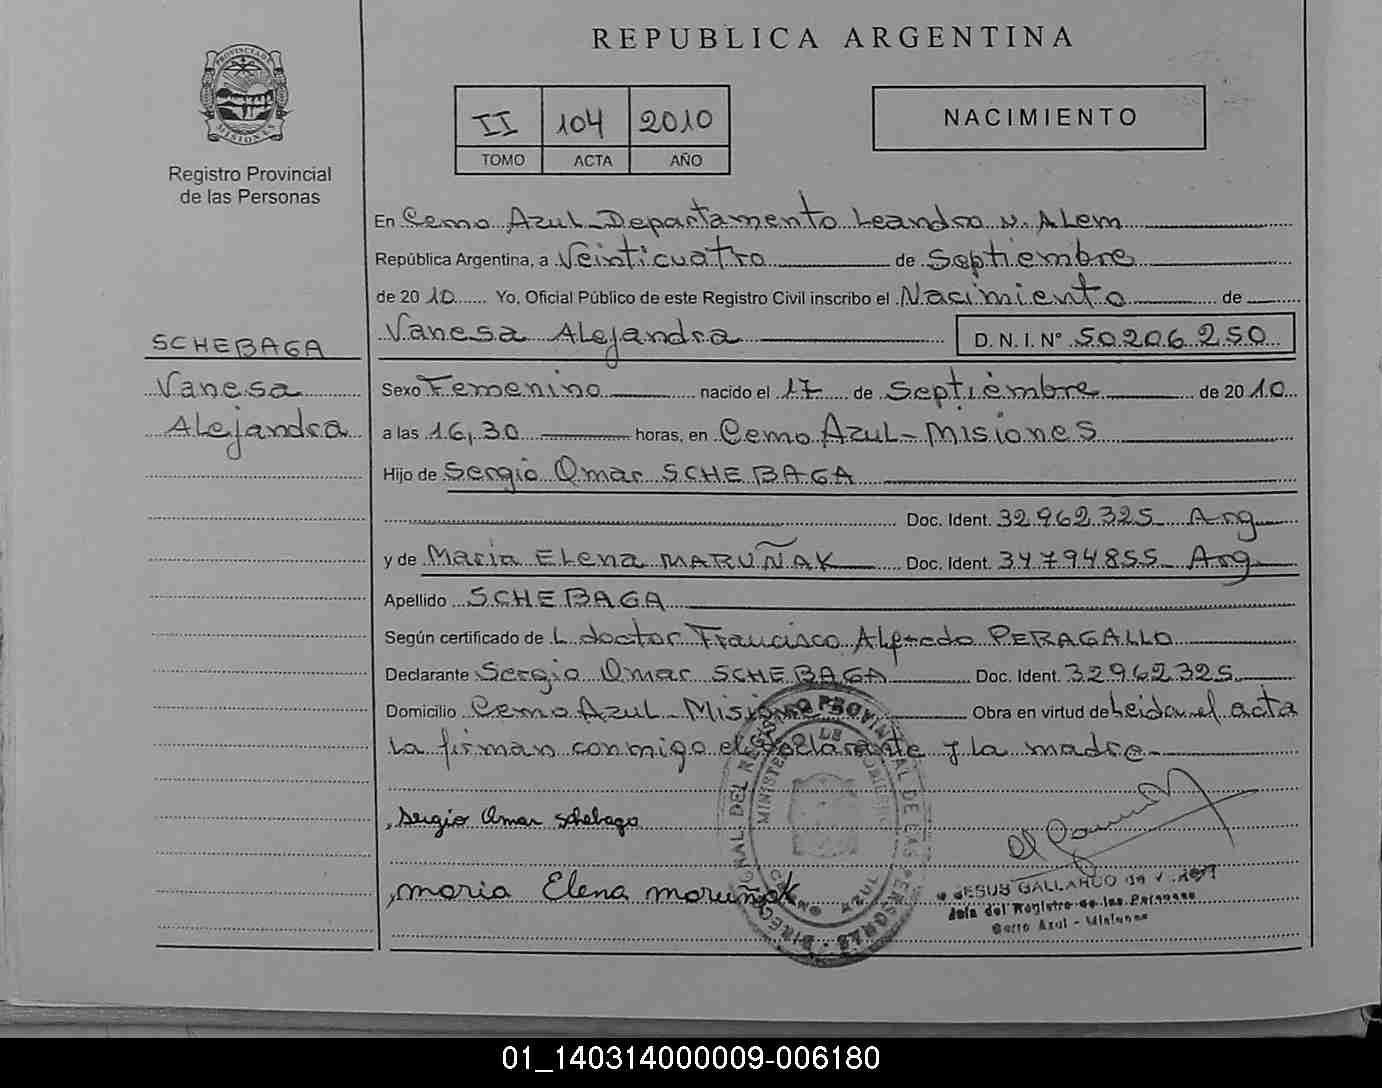 REPUBLICA ARGENTINA
PROVINCIA DE
MISIONES
Registro Provincial
de las Personas
II 104 2010
TOMO ACTA AÑO
NACIMIENTO
En Cerro Azul - Departamento Leandro N. Alem
República Argentina, a Veinticuatro de Septiembre
de 2010 Yo, Oficial Público de este Registro Civil inscribo el Nacimiento de
Vanesa Alejandra D. N. I. Nº 50.206.250
SCHEBAGA
Vanesa
Alejandra
Sexo Femenino nacido el 17 de Septiembre de 2010
a las 16,30 horas, en Cerro Azul - Misiones
Hijo de Sergio Omar SCHEBAGA
Doc. Ident. 32.962.325 Arg
y de María Elena MARUÑAK Doc. Ident. 34.794.855 Arg
Apellido SCHEBAGA
Según certificado de L doctor Francisco Alfredo PERAGALLO
Declarante Sergio Omar SCHEBAGA Doc. Ident. 32.962.325
Domicilio Cerro Azul - Misiones Obra en virtud de Leida el acta
la firman conmigo el declarante y la madre
Sergio Omar Schebaga
Maria Elena Maruñak
DIREC. GRAL. DEL REGISTRO PROVINCIAL DE LAS PERSONAS
MINISTERIO DE GOBIERNO
CERRO AZUL
JESUS GALLARDO
Jefa del Registro de las Personas
Cerro Azul - Misiones
01_140314000009-006180